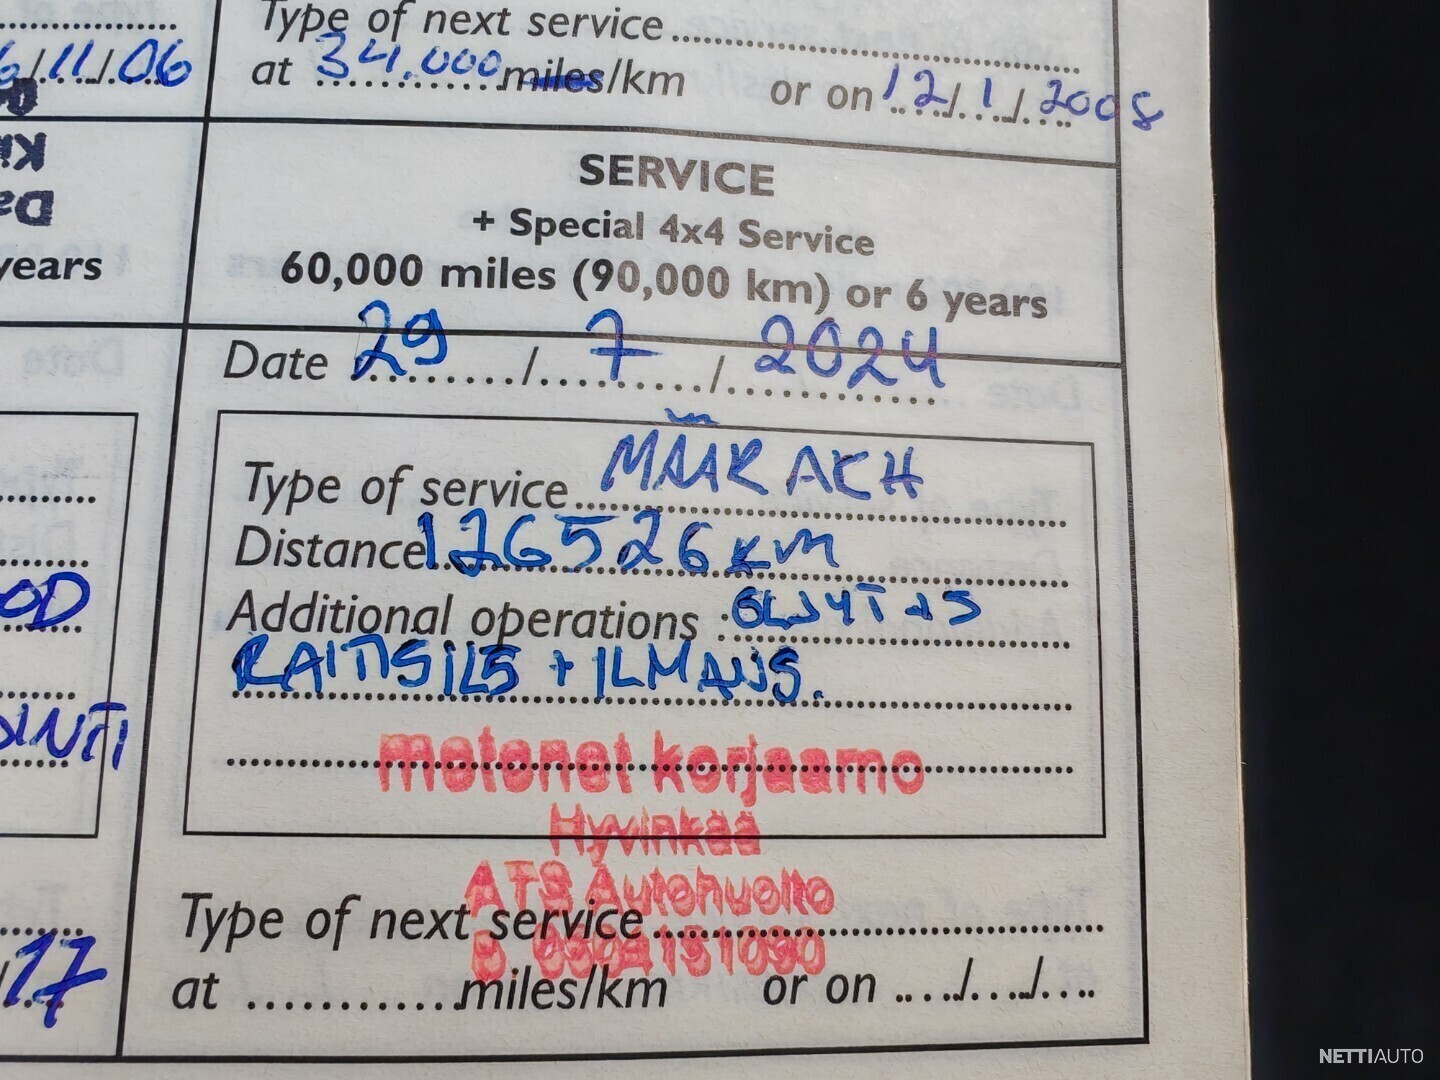 Type of next service
6/11/06
at 34.000 miles/km or on 12/1/2008
Ki
Da
SERVICE
+ Special 4x4 Service
years
60,000 miles (90,000 km) or 6 years
Date 29/7/2024
Type of service MÄÄRAKH
Distance 126526 km
OD
Additional operations :
RAITISILS + ILMANS.
INTI
motonet korjaamo
Hyvinkää
ATS Autohuolto
Type of next service
/17
at miles/km or on / /
NETTIAUTO